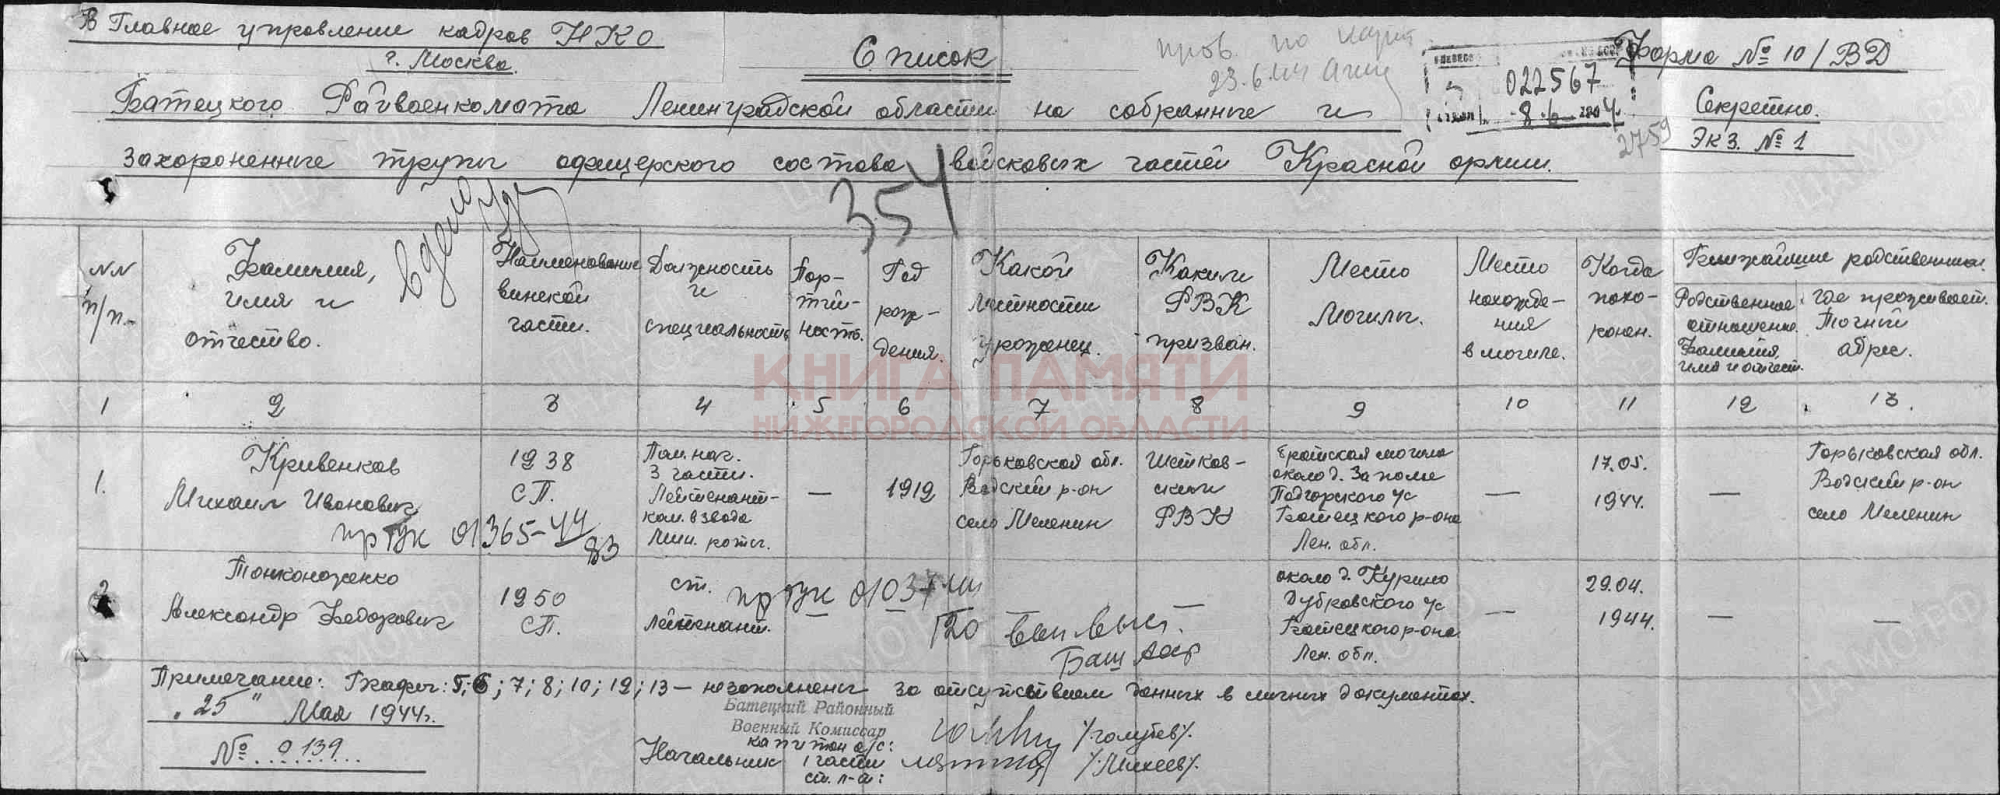 В Главное управление кадров НКО
г. Москва.
Список
пров. по карт
23.6.44
022567
8-6-
2759
Форма № 10/ВД
Секретно.
Экз. № 1
Батецкого Райвоенкомата Ленинградской области на собранные и
захороненные трупы офицерского состава войсковых частей Красной армии.
354
NN п/п.
Фамилия, имя и отчество.
Наименование воинской части.
Должность и специальность
Партийность.
Год рождения.
Какой местности уроженец.
Каким РВК призван.
Место могилы.
Место нахождения в могиле.
Когда похоронен.
Ближайшие родственники.
Родственное отношение. Фамилия, имя и отчест.
Где проживает. Точный адрес.
1 2 3 4 5 6 7 8 9 10 11 12 13.
1.
Кривенков
Михаил Иванович
1938
СП.
Пом. нач.
3 части.
Лейтенант-
ком. взвода
мин. роты.
—
1919
Горьковская обл.
Вадский р-он
село Меленин
Шетков-
ским
РВК
Братская могила
около д. Заполье
Подгорского с/с
Батецкого р-она
Лен. обл.
—
17.05.
1944.
—
Горьковская обл.
Вадский р-он
село Меленин
пр ГУК 01365-44
83
2
Тонконоженко
Александр Федорович
1950
СП.
ст.
лейтенант.
—
пр ГУК 0103
Баш
около д. Курино
Дубровского с/с
Батецкого р-она
Лен. обл.
—
29.04.
1944.
—
—
Примечание: Графы: 5; 6; 7; 8; 10; 12; 13 — незаполнены за отсутствием данных в личных документах.
"25" Мая 1944г.
№ 0139
Батецкий Районный
Военный Комиссар
капитан а/с:
/Голубев/.
Начальник 1 части
ст. л-т:
/Михеев/.
КНИГА ПАМЯТИ
НИЖЕГОРОДСКОЙ ОБЛАСТИ
ЦАМО.РФ